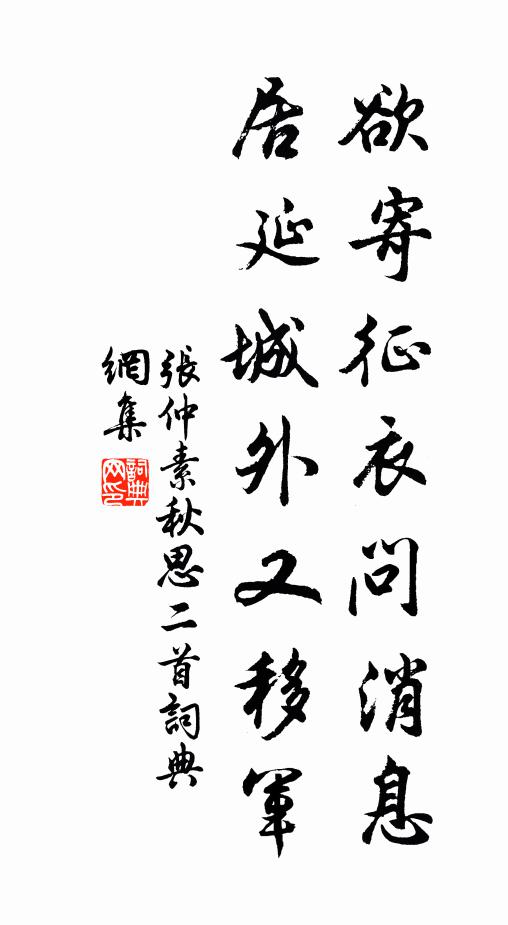 欲寄征衣問消息
居延城外又移軍
張仲素秋思二首詞典
網集
詞典
网印